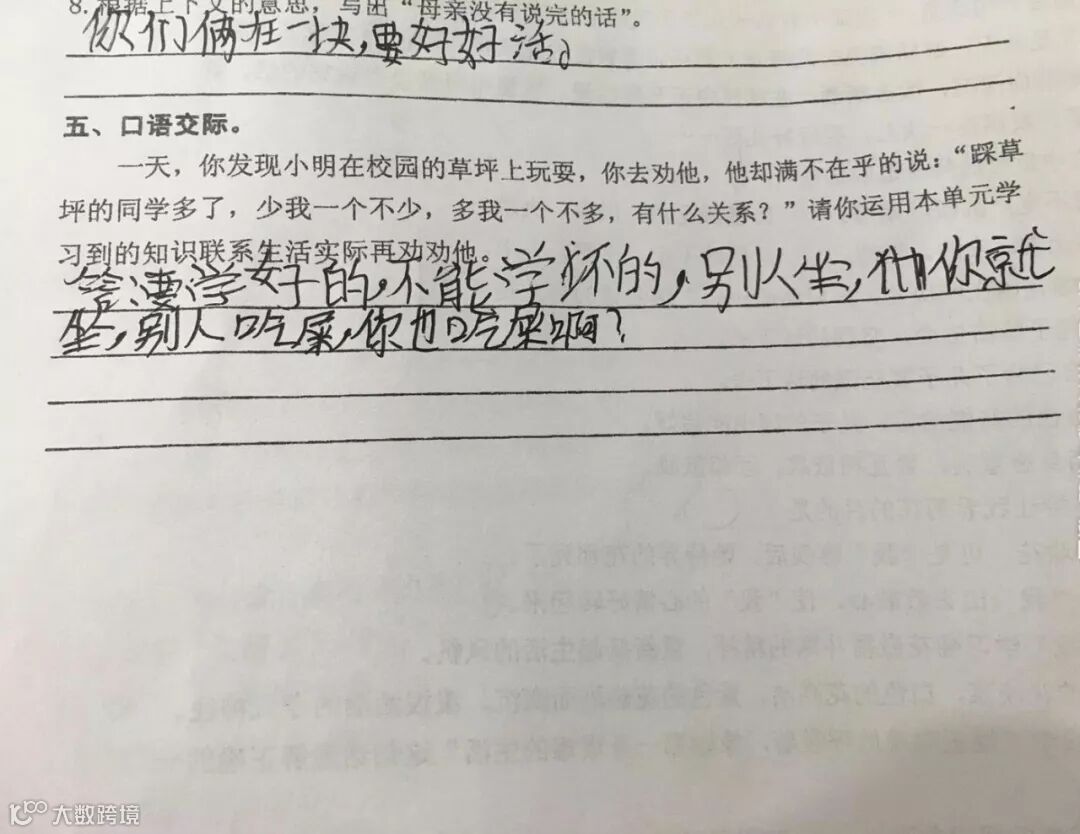 8. 根据上下文的意思，写出“母亲没有说完的话”。
你们俩在一块，要好好活。
五、口语交际。
一天，你发现小明在校园的草坪上玩耍，你去劝他，他却满不在乎的说：“踩草
坪的同学多了，少我一个不少，多我一个不多，有什么关系？”请你运用本单元学
习到的知识联系生活实际再劝劝他。
答:要学好的，不能学坏的，别人坐，你就
坐，别人吃屎，你也吃屎啊？
大数跨境